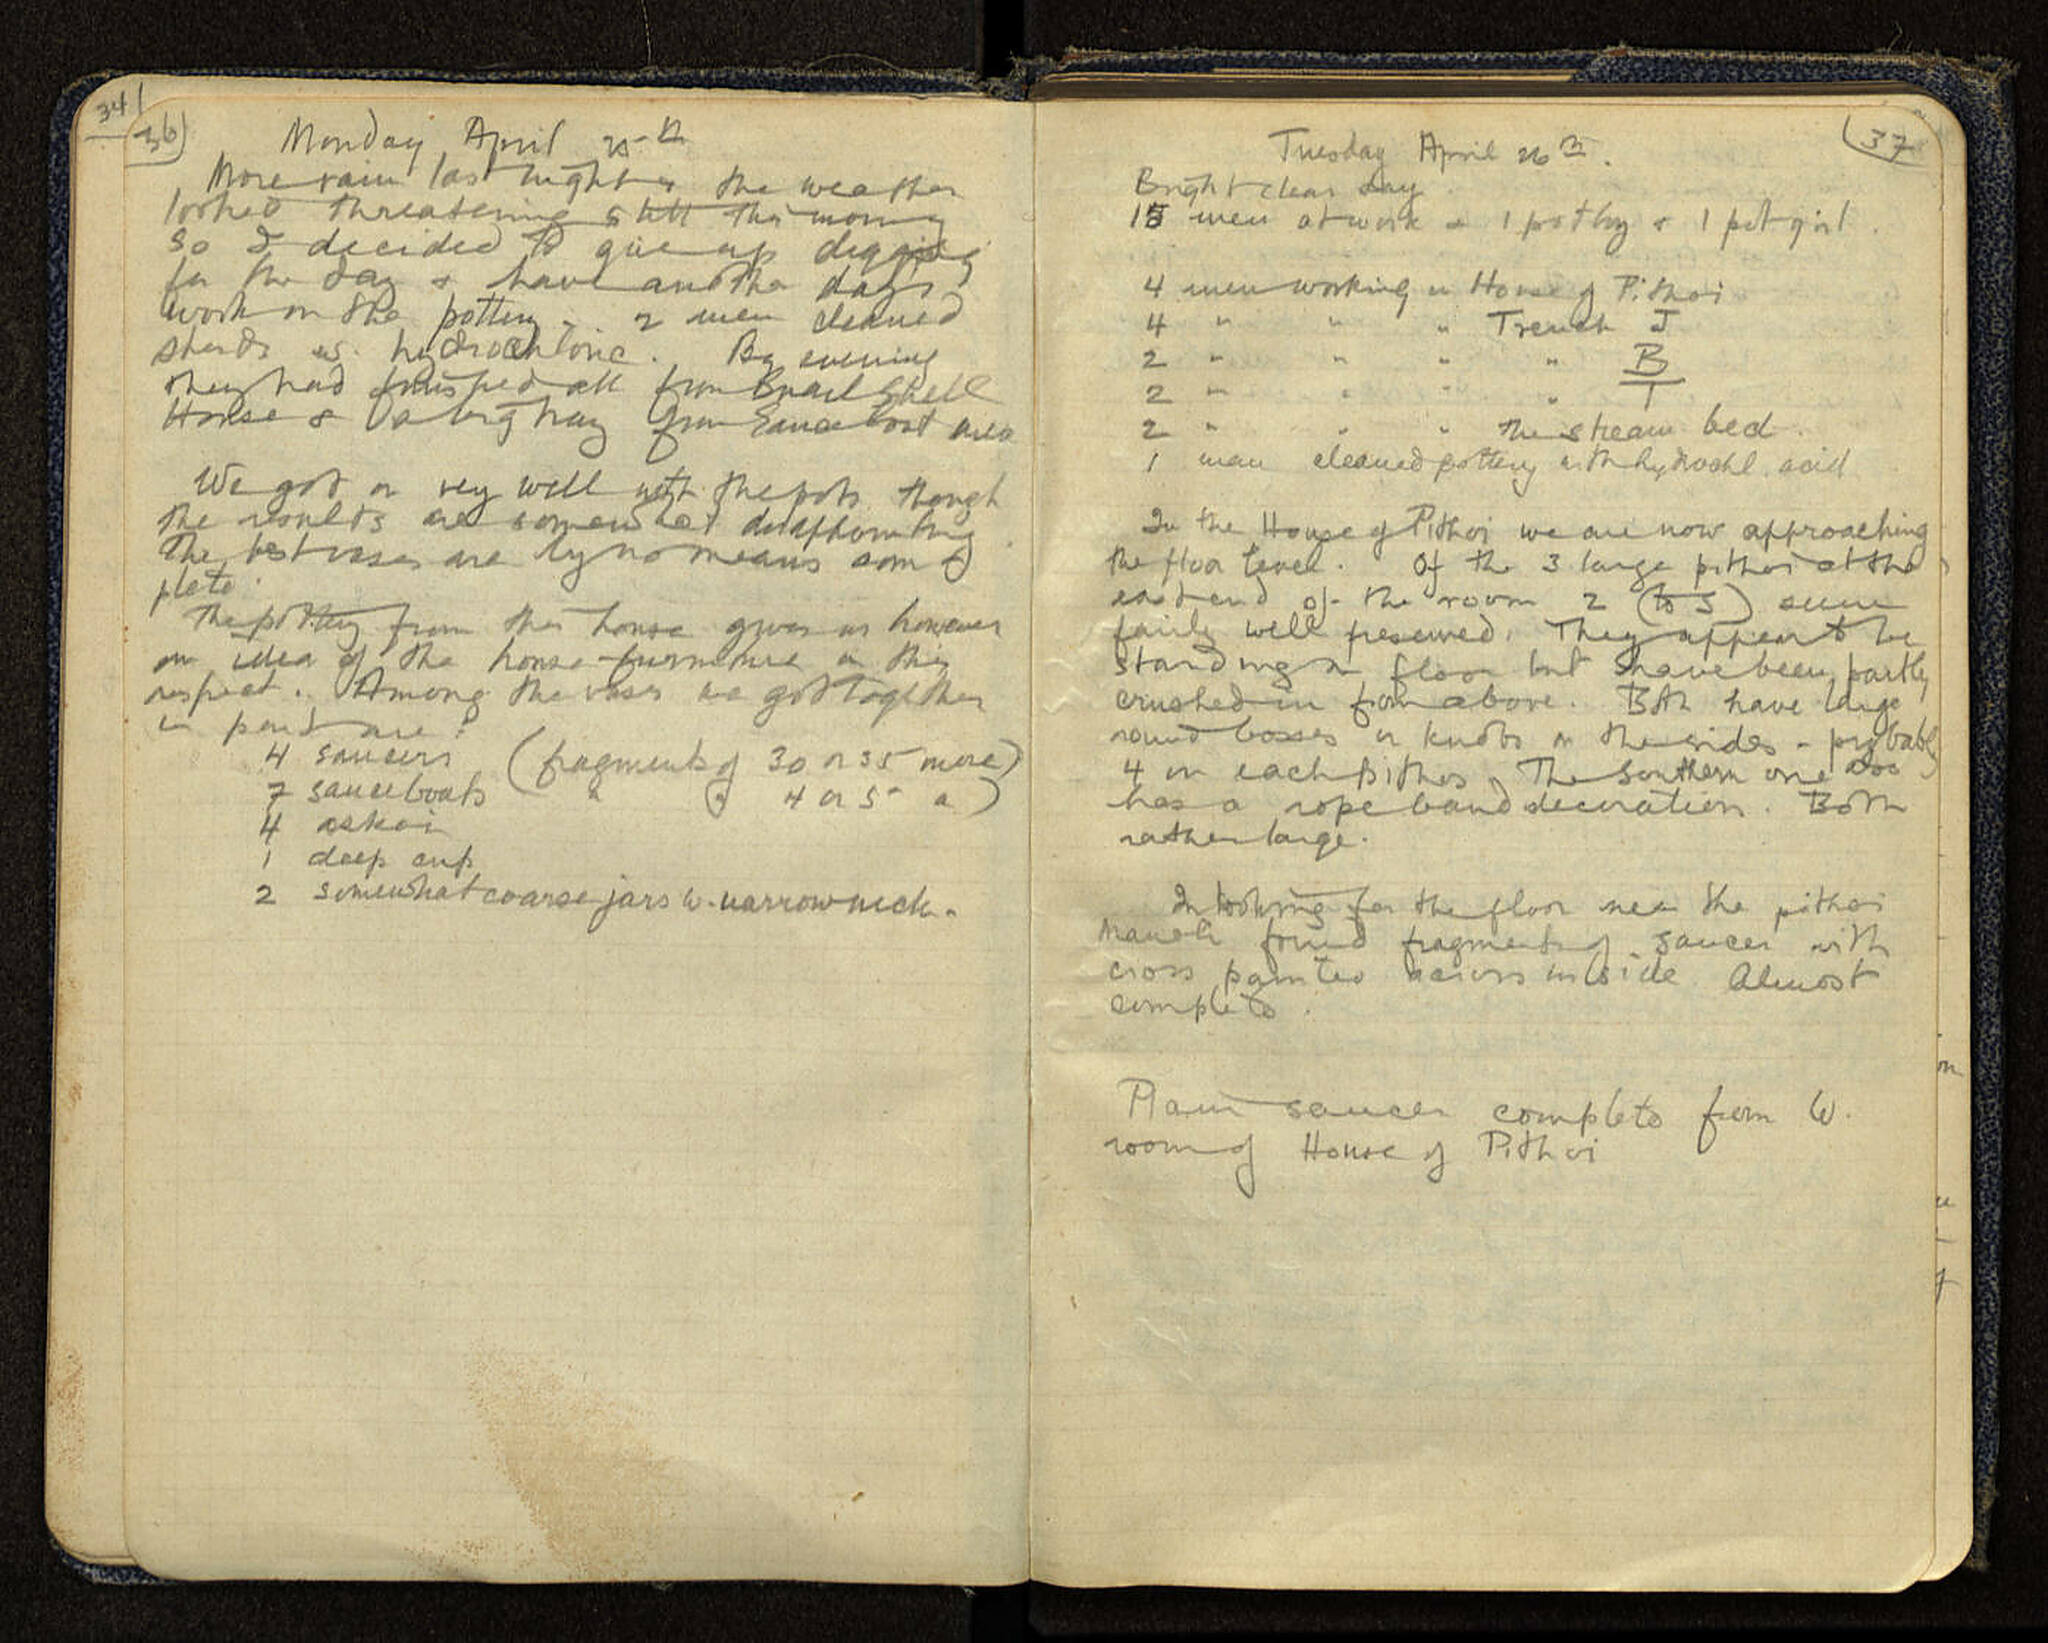 34
36
Monday April 25th
More rain last night & the weather
looked threatening still this morning
so I decided to give up digging
for the day & have another day's
work on the pottery. 2 men cleaned
sherds w. hydrochloric. By evening
they had finished all from Snail Shell
House & a big tray from Sauceboat area
We got on very well with the pots though
the results are somewhat disappointing.
The best vases are by no means com
plete.
The pottery from this house gives us however
an idea of the house-furniture in this
respect. Among the vases we got together
in part are:
4 saucers (fragments of 30 or 35 more)
7 sauceboats ( " " 4 or 5 " )
4 askoi
1 deep cup
2 somewhat coarse jars w. narrow neck.
37
Tuesday April 26th.
Bright clear day
15 men at work & 1 potboy & 1 pot girl.
4 men working in House of Pithoi
4 " " " Trench J
2 " " " " B
2 " " " " T
2 " " " the stream bed.
1 man cleaned pottery with hydrochl. acid
In the House of Pithoi we are now approaching
the floor level. Of the 3 large pithoi at the
east end of the room 2 (to S) seem
fairly well preserved. They appear to be
standing on floor but have been partly
crushed in from above. Both have large
round bosses or knobs on the sides - probably
4 on each pithos. The Southern one also
has a rope band decoration. Both
rather large.
In looking for the floor near the pithoi
found fragments of saucer with
cross painted across inside. Almost
complete.
Plain saucer complete from W.
room of House of Pithoi